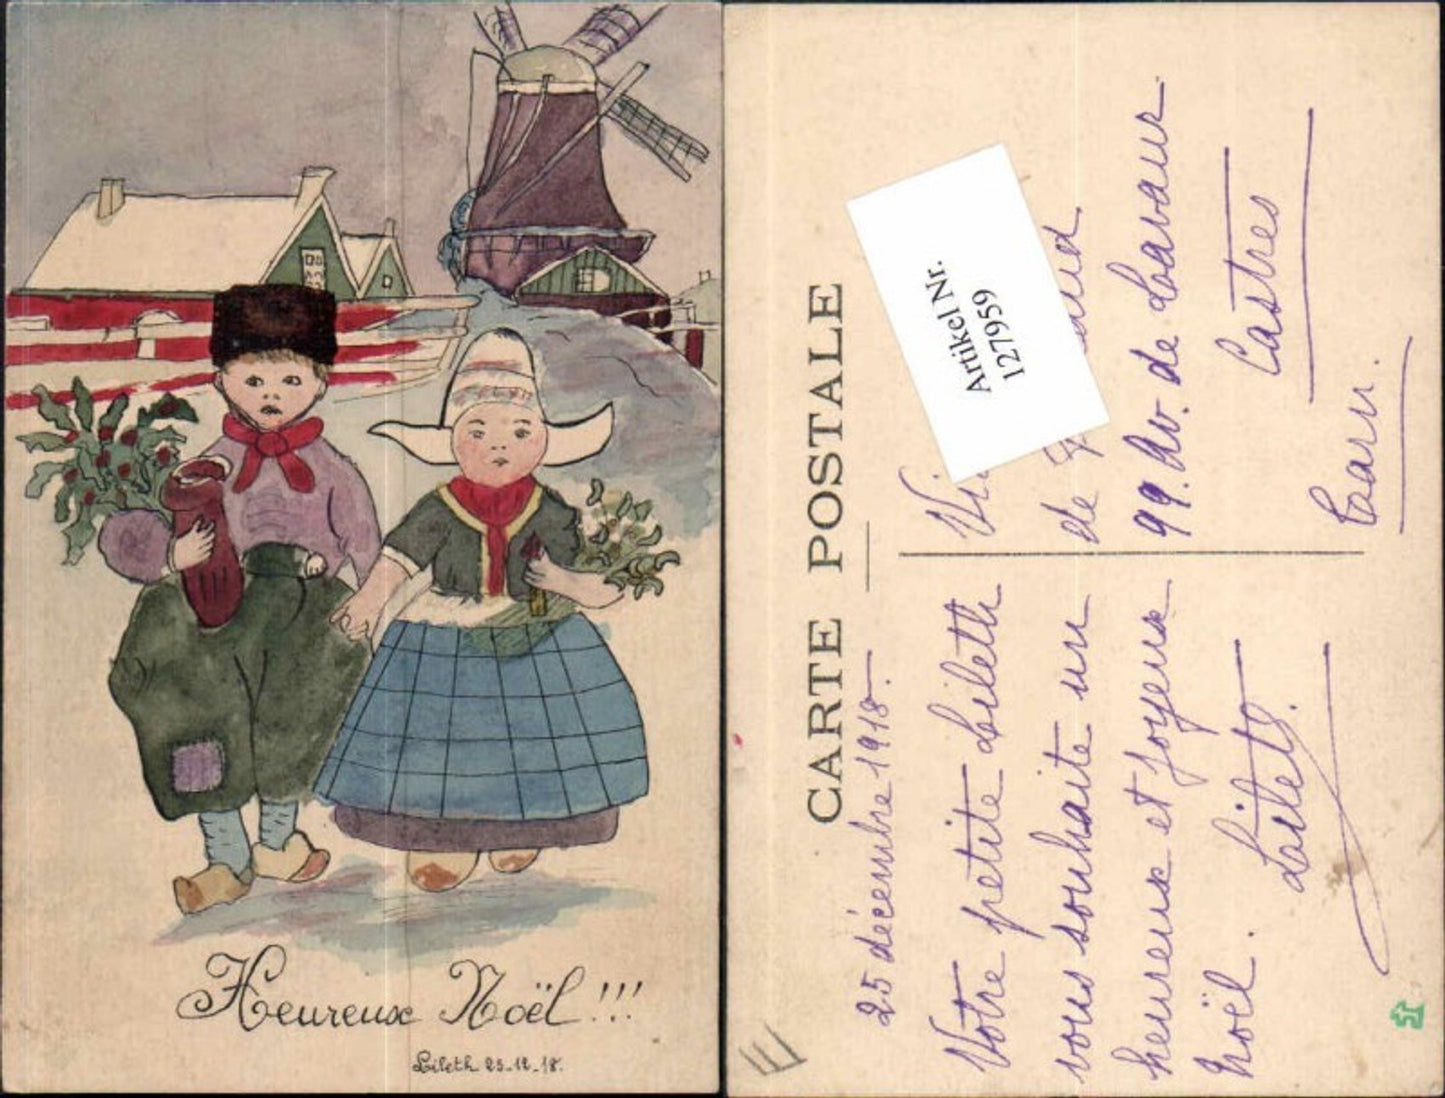 Heureux Noël!!!
Lileth 25-12-18.
CARTE POSTALE
25 décembre 1918.
Votre petite Lileth
vous souhaite un
heureux et joyeux
Noël.
Lileth.
de
99. Av. de Lavaur
Castres
Tarn.
Artikel Nr.
127959